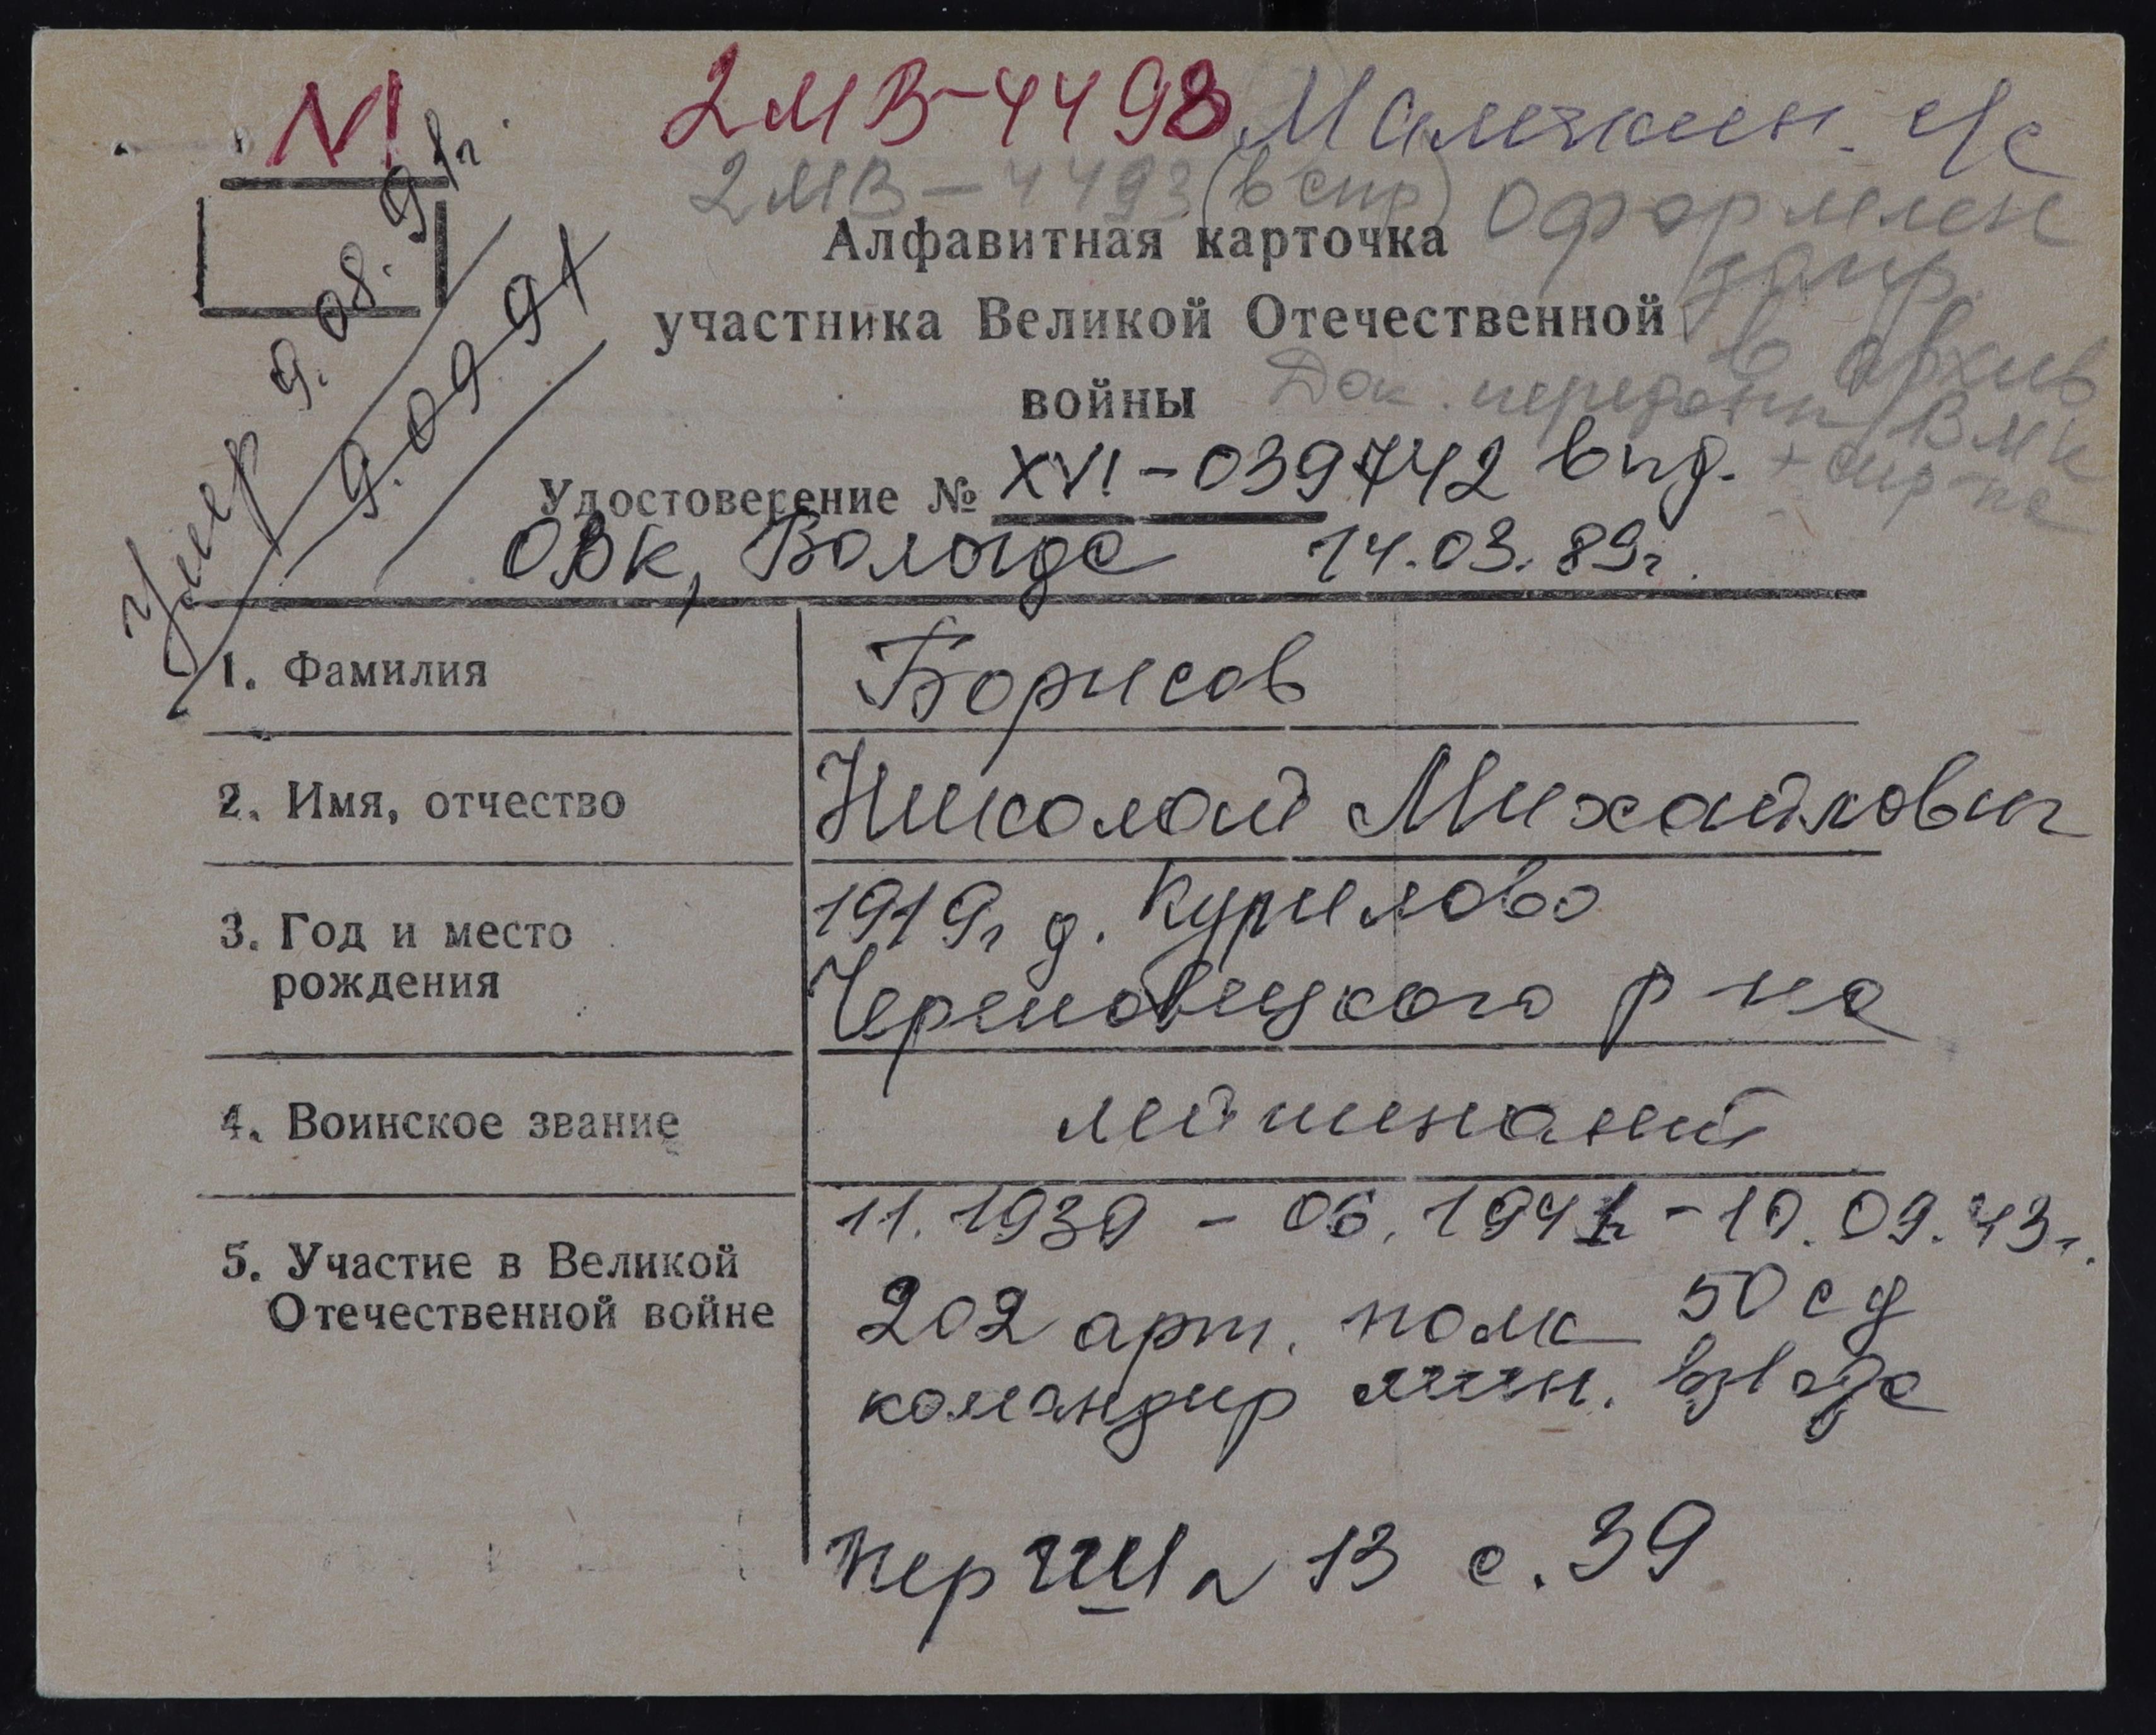 №1 2МВ-4498
2МВ-4493 (в спр) Оформлен
запр.
в архив
Алфавитная карточка
участника Великой Отечественной
войны
Док. переданы ВМК
Умер 9.08.91г.
9.09.91
Удостоверение № XVI-039742 выд.
ОВК, Вологда 14.03.89г.
1. Фамилия Борисов
2. Имя, отчество Николай Михайлович
3. Год и место 1919г д. Курилово
рождения Череповецкого р-на
4. Воинское звание лейтенант
11.1939 - 06.1941г - 10.09.43г.
5. Участие в Великой
Отечественной войне 202 арт. полк 50 сд
командир мин. взвода
№ 13 с. 39